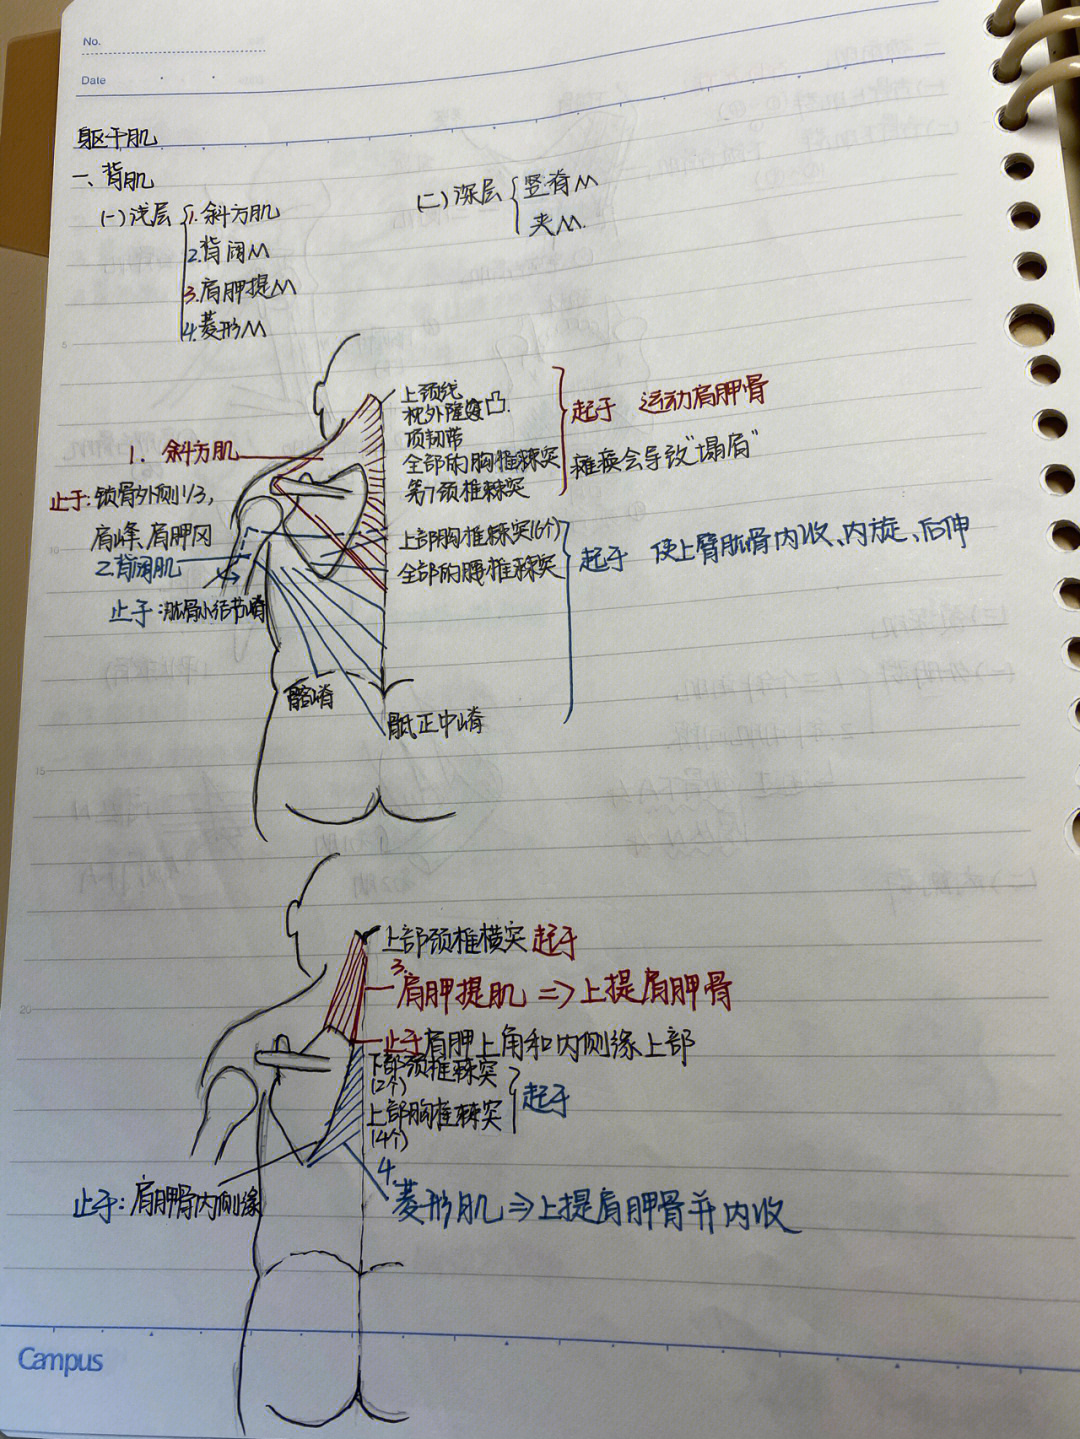 No.
Date
躯干肌
一、背肌
(一)浅层
1.斜方肌
2.背阔M
3.肩胛提M
4.菱形M
(二)深层
竖脊M
夹M.
上颈线
枕外隆凸.
项韧带
全部的胸椎棘突
第7颈椎棘突
起于 运动肩胛骨
瘫痪会导致"塌肩"
1. 斜方肌
止于:锁骨外侧1/3,
肩峰、肩胛冈
2.背阔肌
止于:肱骨小结节嵴
上部胸椎棘突(6个)
全部的腰椎棘突
起于 使上臂肱骨内收、内旋、后伸
髂嵴
骶正中嵴
上部颈椎横突 起于
3.
肩胛提肌 => 上提肩胛骨
止于肩胛上角和内侧缘上部
下部颈椎棘突
(2个)
上部胸椎棘突
(4个)
起于
4.
菱形肌 => 上提肩胛骨并内收
止于:肩胛骨内侧缘
5
10
15
20
Campus